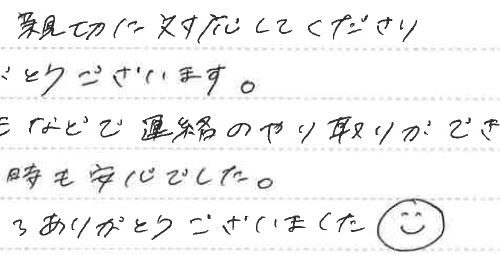 親切に対応してくださり
とうございます。
などで連絡のやり取りができ
時も安心でした。
ありがとうございました